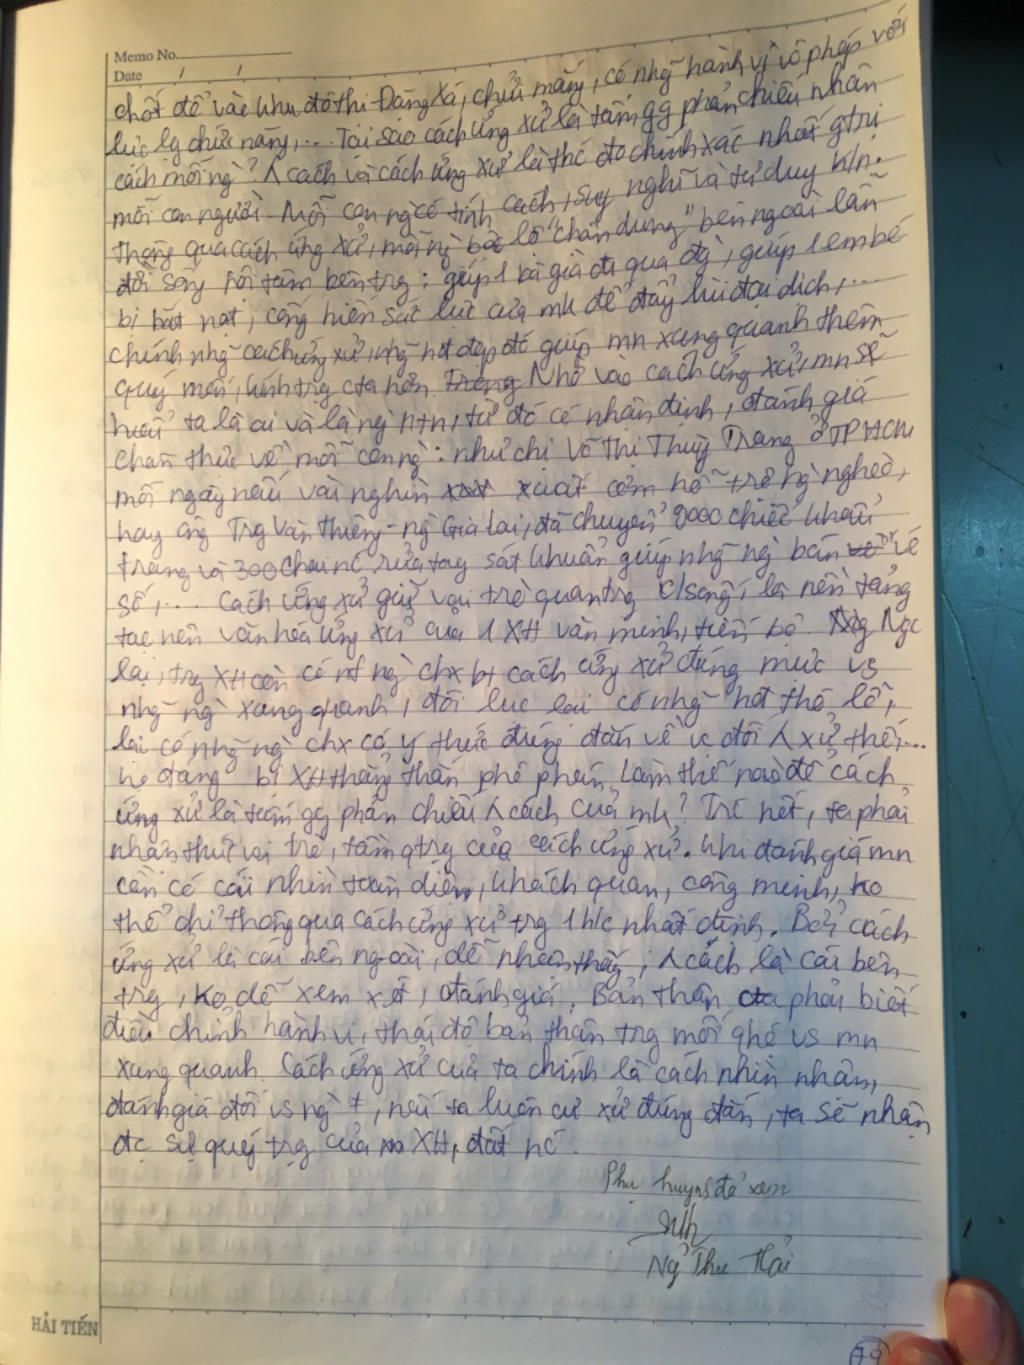 Memo No.
Date / /
chốt để vào khu đô thị Đặng Xá, chửi mắng, có nhg~ hành vi vô phép với
lực lg chức năng,... Tại sao cách ứng xử là tấm gg phản chiếu nhân
cách mỗi ng`? ʌ cách và cách ứng xử là thc đo chính xác nhất gtrị
mỗi con người. Mỗi con ng` có tính cách, suy nghĩ và tư duy k/n.
Thông qua cách ứng xử, mỗi ng` bộc lộ "chân dung" bên ngoài lẫn
đời sống nội tâm bên trg: giúp 1 bà già đi qua đg`, giúp 1 em bé
bị bắt nạt, cống hiến sức lực của mk để đẩy lùi đại dịch,...
chính nhg~ cách ứng xử, nhg~ nét đẹp đó giúp mn xung quanh thêm
quý mến, kính trg cta hơn. Trong Nhờ vào cách ứng xử, mn sẽ
hiểu ta là ai và là ng` ntn, từ đó có nhận định, đánh giá
chân thực về mỗi con ng`: như chị Võ Thị Thùy Trang ở TP HCM
mỗi ngày nấu vài nghìn xuất cơm hỗ trợ ng` nghèo,
hay ông Trg Văn Thiêng - ng` Gia Lai, đã chuyển 2000 chiếc khẩu
trang và 300 chai nc rửa tay sát khuẩn giúp nhg~ ng` bán vé
số,... Cách ứng xử giữ vai trò quan trg c/sống, là nền tảng
tạo nên văn hóa ứng xử của 1 XH văn minh, tiến bộ. Ngc
lại, trg XH còn có nh ng` chx bt cách ứng xử đúng mực vs
nhg~ ng` xung quanh, đôi lúc lại có nhg~ nét thô lỗ,
lại có nhg~ ng` chx có ý thức đúng đắn về vc đối ʌ xử thế,...
họ đang bị XH thẳng thắn phê phán. Làm thế nào để cách
ứng xử là tấm gg phản chiếu ʌ cách của mk? Trc hết, ta phải
nhận thức vai trò, tầm qtrg của cách ứng xử. Khi đánh giá mn
cần có cái nhìn toàn diện, khách quan, công minh, ko
thể chỉ thông qua cách ứng xử trg 1 h/c nhất định. Bởi cách
ứng xử là cái bên ngoài, dễ nhận thấy; ʌ cách là cái bên
trg, ko dễ xem xét, đánh giá. Bản thân cta phải biết
điều chỉnh hành vi, thái độ bản thân trg mối qhệ vs mn
xung quanh. Cách ứng xử của ta chính là cách nhìn nhận,
đánh giá đối vs ng` ≠, nếu ta luôn cư xử đúng đắn, ta sẽ nhận
đc sự quý trg của XH, đất nc.
Phụ huynh đã xem
Ng~ Thu Hải
HẢI TIẾN